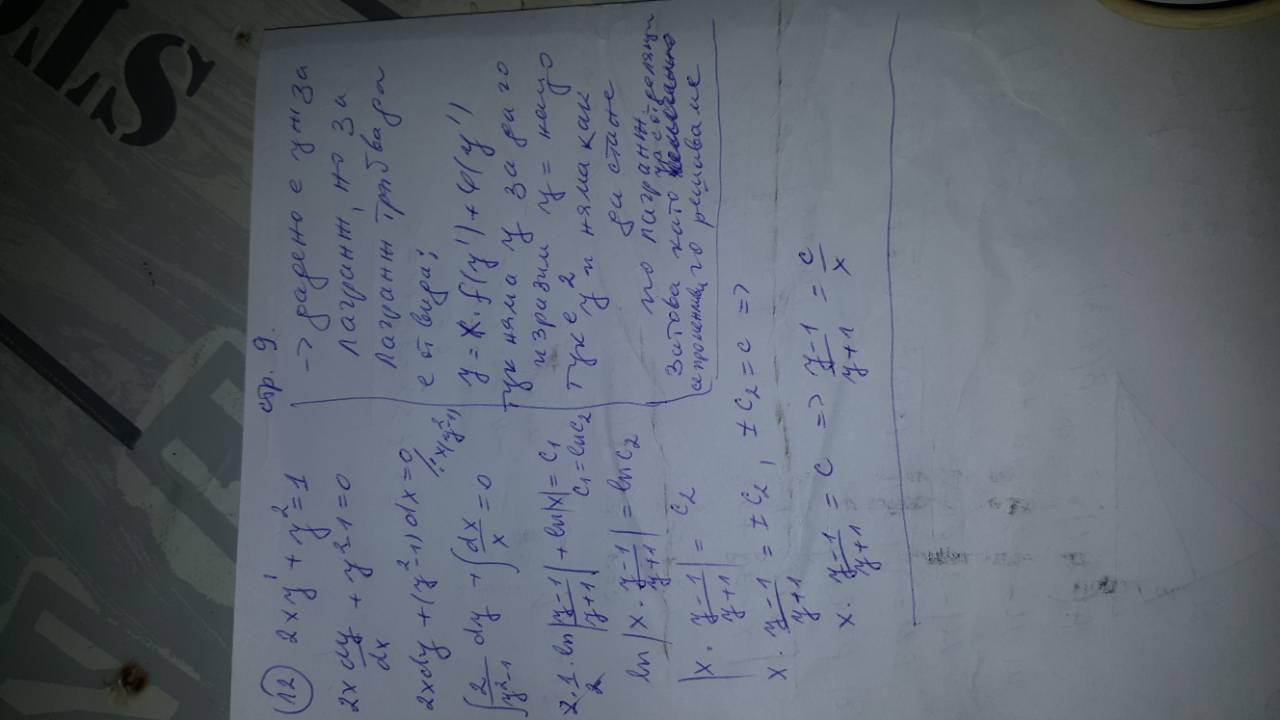 STO
стр. 9.
12 2xy' + y² = 1
2x dy/dx + y²-1=0
2xdy + (y²-1) dx = 0 /: x(y²-1)
∫ 2/(y²-1) dy + ∫ dx/x = 0
2.1/2 . ln|(y-1)/(y+1)| + ln|x| = C₁
C₁ = lnC₂
ln|x . (y-1)/(y+1)| = lnC₂
|x . (y-1)/(y+1)| = C₂
x . (y-1)/(y+1) = ±C₂ , ±C₂ = C =>
x . (y-1)/(y+1) = C => (y-1)/(y+1) = C/x
-> дадено е уж за
лагранж, но за
лагранж трябва да
е от вида:
y = x . f(y') + φ(y')
тук няма y за да го
изразим y = нещо
тук е y² и няма как
да стане
по лагранж.
Затова като ур с отделящи
се променливи го решаваме